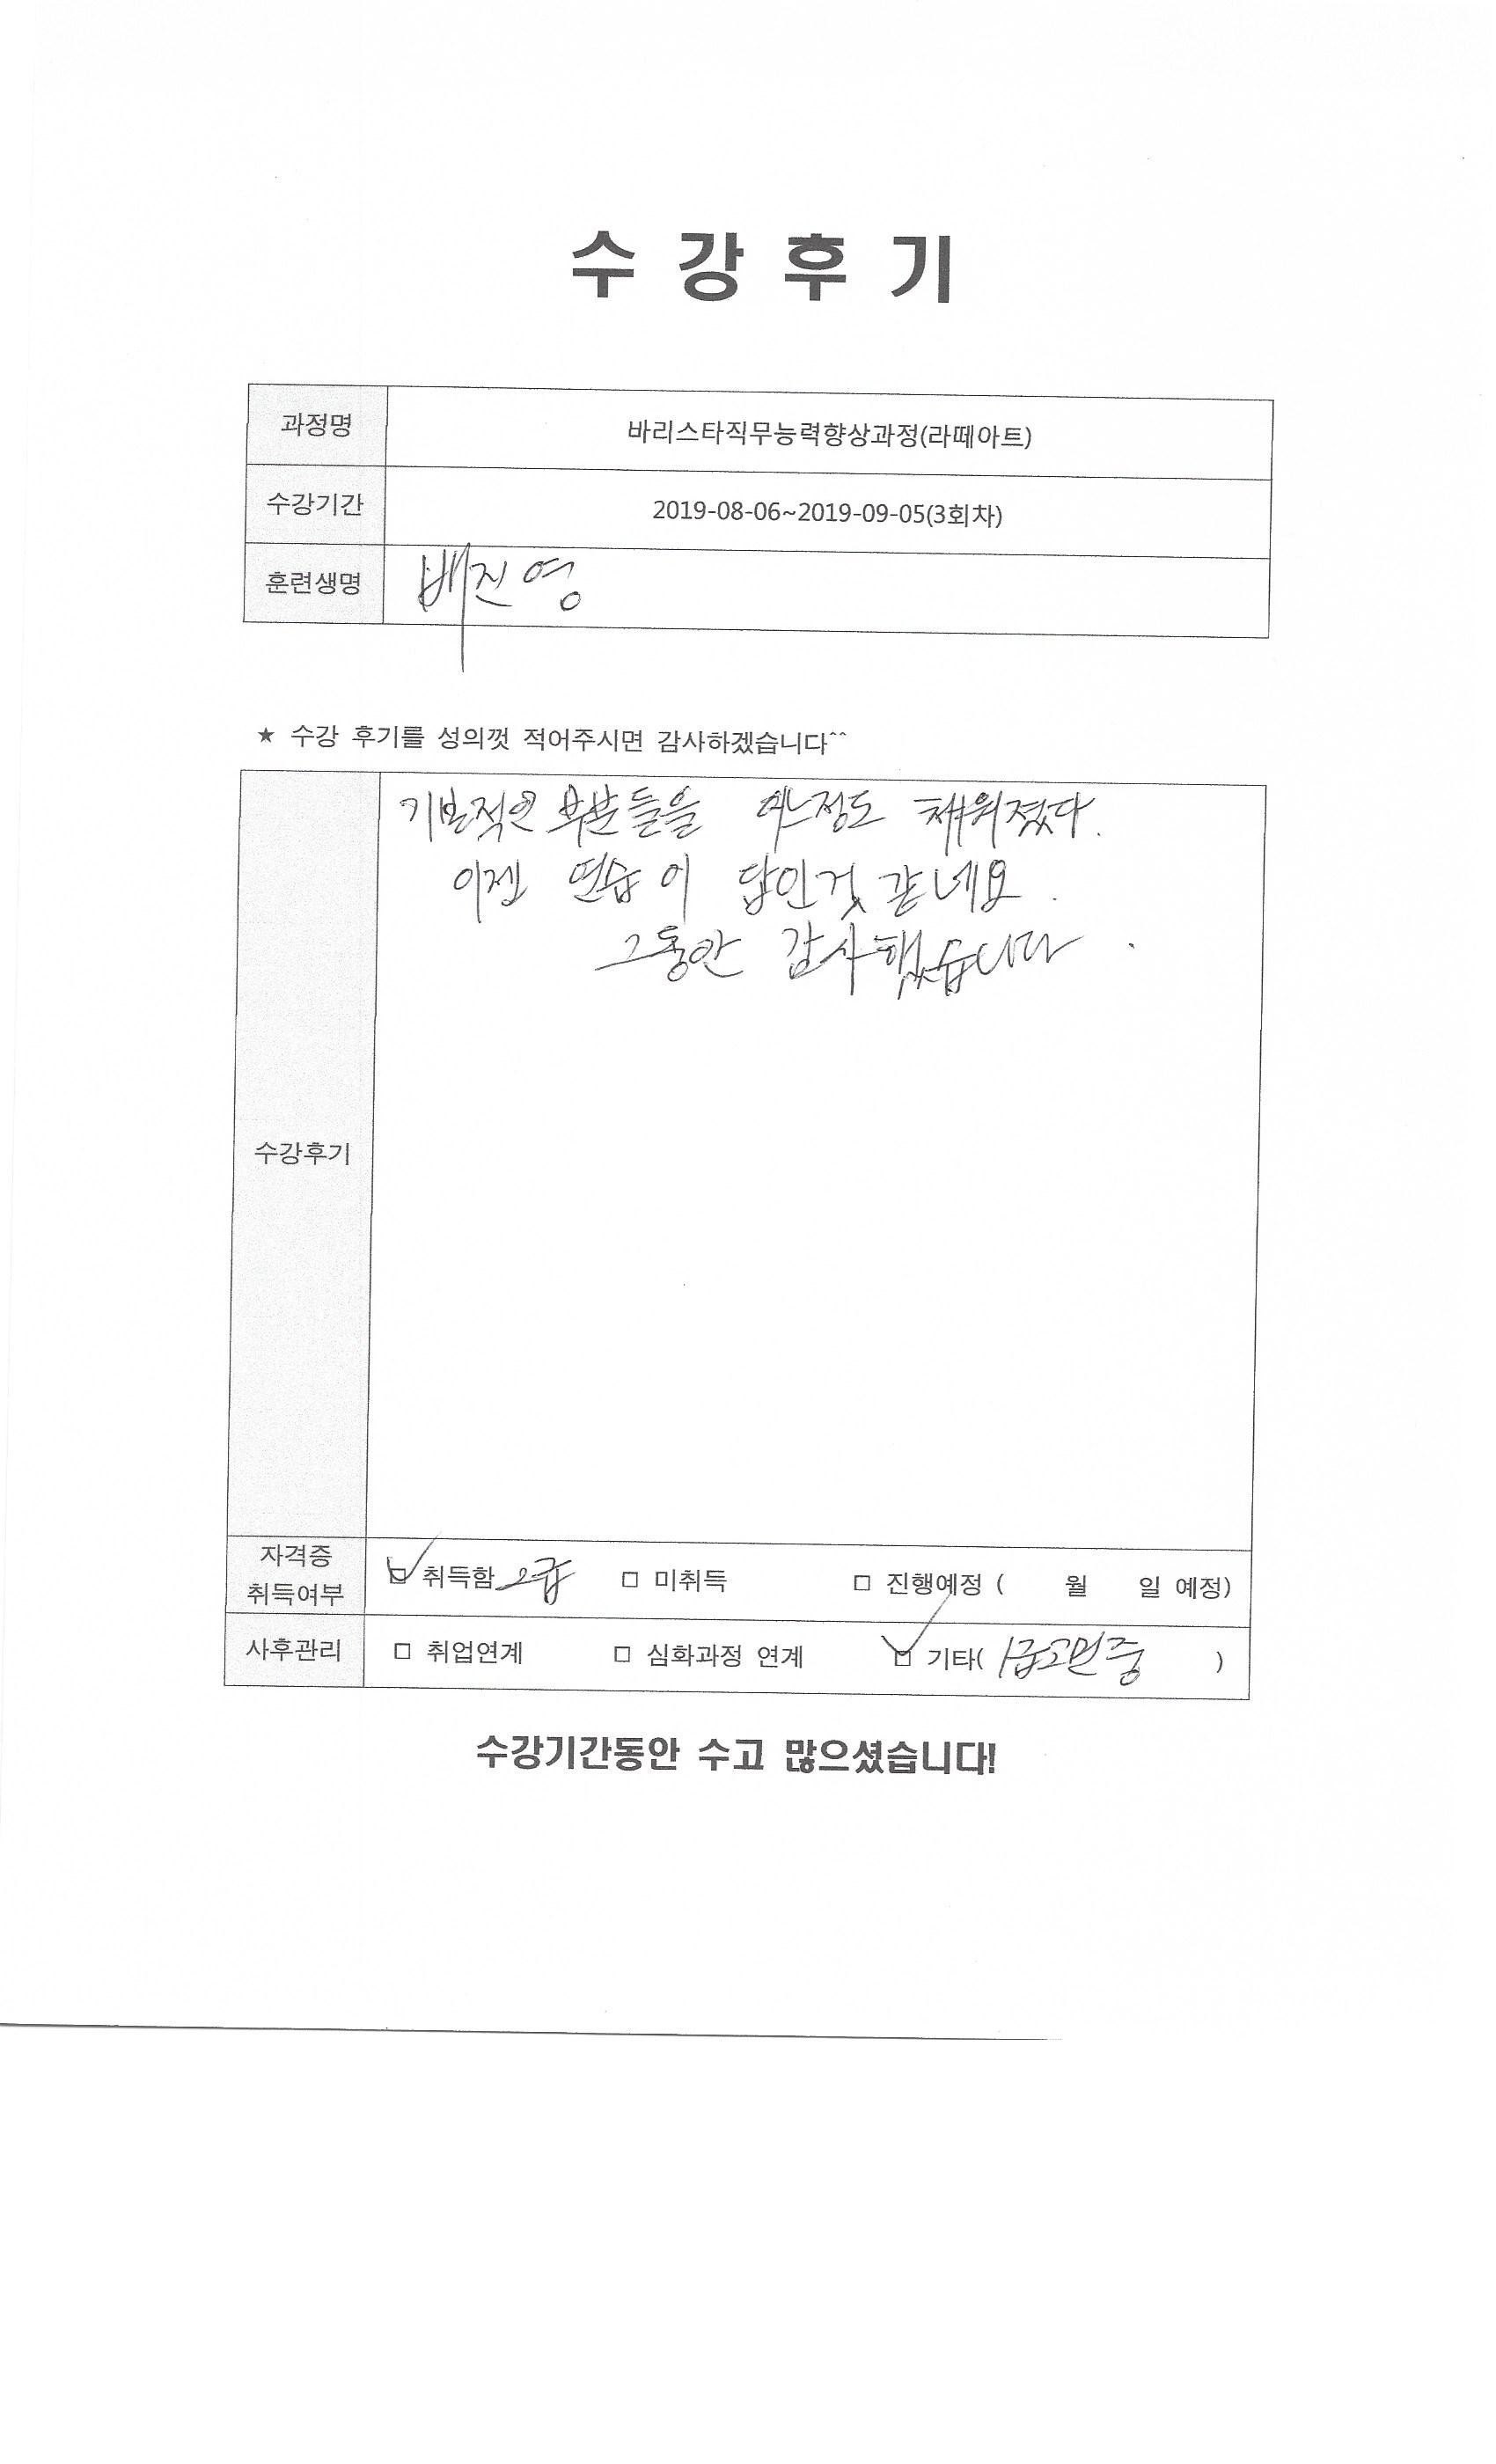 수 강 후 기
과정명 바리스타직무능력향상과정(라떼아트)
수강기간 2019-08-06~2019-09-05(3회차)
훈련생명 배진영
★ 수강 후기를 성의껏 적어주시면 감사하겠습니다^^
기본적인 부분들을 어느정도 채워졌다.
이젠 연습이 답인것 같네요.
그동안 감사했습니다.
수강후기
자격증
취득여부 ☑ 취득함 2급 □ 미취득 □ 진행예정 ( 월 일 예정)
사후관리 □ 취업연계 □ 심화과정 연계 ☑ 기타( 1급고민중 )
수강기간동안 수고 많으셨습니다!